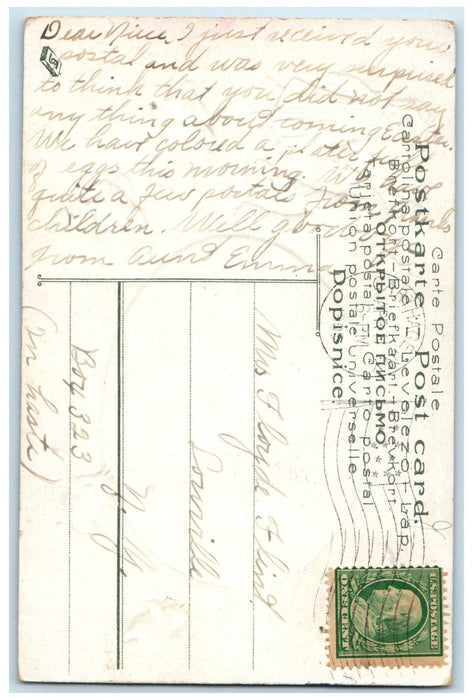 Dear Niece, I just received your
postal and was very surprised
to think that you did not say
any thing about coming Easter.
We have colored a plater
of eggs this morning.
quite a few postals from
children. Well good
from Aunt Emma
Carte Postale
Postkarte Post card.
Carte postale
Briefkaart
ОТКРЫТОЕ ПИСЬМО
Tarjeta postal Carto postal
Union postale universelle
Dopisnice.
Mrs Floyde Flint
Lowville
N.Y.
Box 323
(in haste)
U.S. POSTAGE
ONE CENT